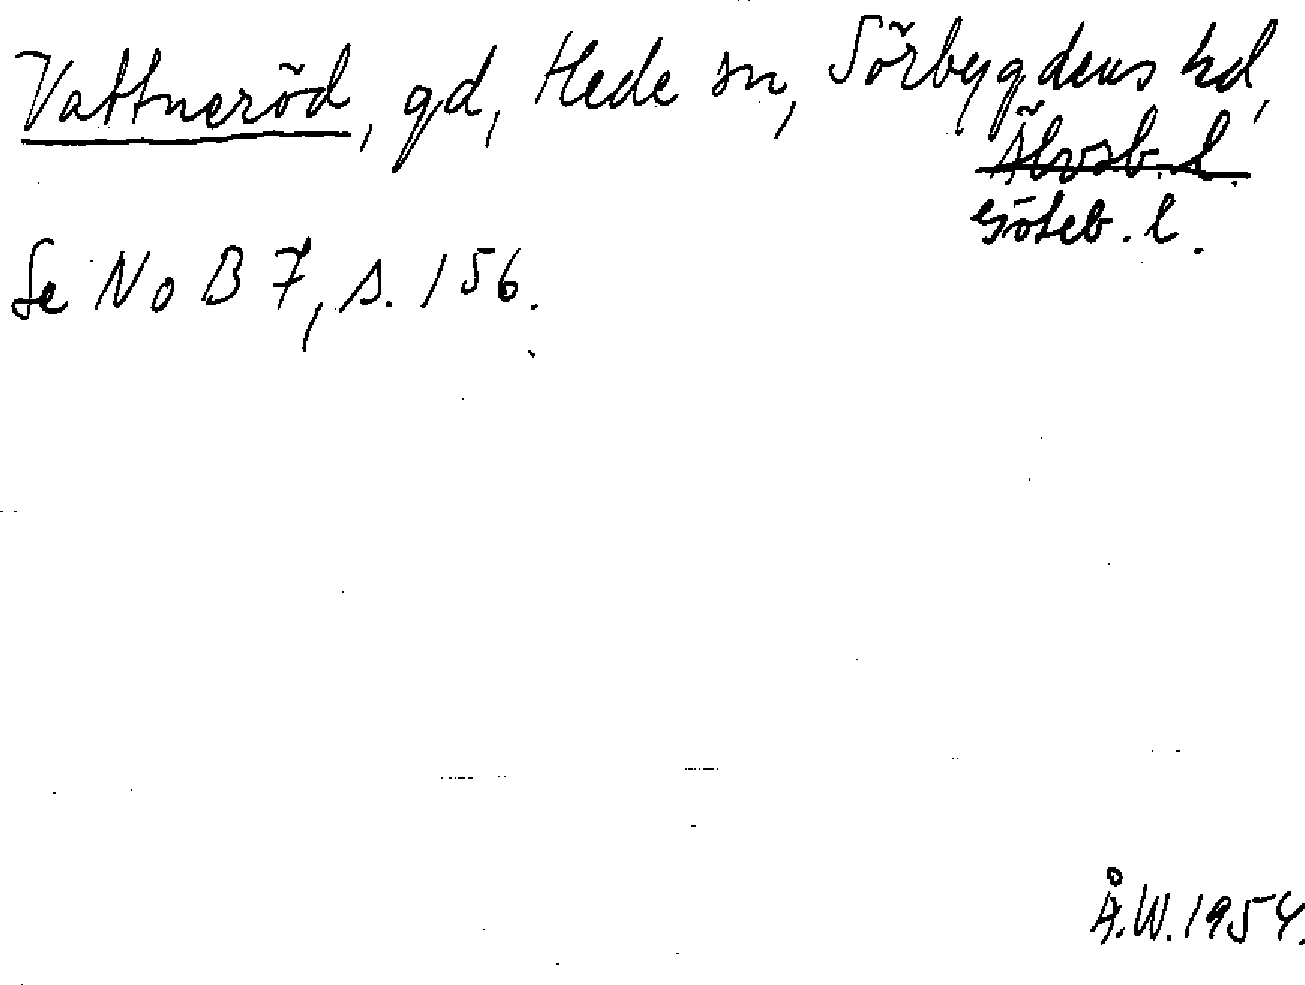 Vattneröd, gd, Hede sn, Sörbygdens hd,
Älvsb. l.
Göteb. l.
Se NoB 7, s. 156.
Å.W. 1954.